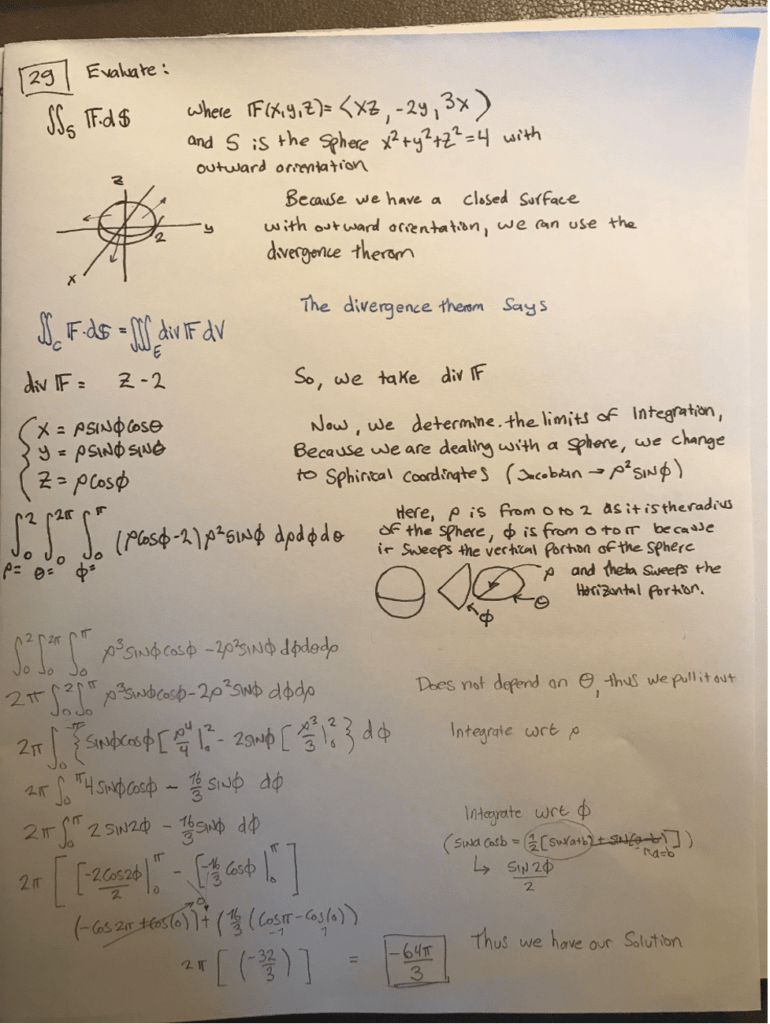 29 Evaluate:
∬_S 𝔽·d𝕊 where 𝔽(x,y,z)= ⟨xz, -2y, 3x⟩
and S is the sphere x²+y²+z²=4 with
outward orientation
z
y
2
x
Because we have a closed surface
with outward orientation, we can use the
divergence therom
The divergence therom says
∬_C 𝔽·d𝕊 = ∭_E div 𝔽 dV
div 𝔽 = z-2 So, we take div 𝔽
{ x = ρsinφcosθ
y = ρsinφsinθ
z = ρcosφ
Now, we determine the limits of Integration,
Because we are dealing with a sphere, we change
to Sphirical coordinates (Jacobian → ρ²sinφ)
∫₀² ∫₀^2π ∫₀^π (ρcosφ-2)ρ²sinφ dρdφdθ
ρ= θ= φ=
Here, ρ is from 0 to 2 as it is the radius
of the sphere, φ is from 0 to π because
it sweeps the vertical portion of the sphere
and theta sweeps the
Horizontal portion.
ρ
θ
φ
∫₀² ∫₀^2π ∫₀^π ρ³sinφcosφ - 2ρ²sinφ dφdθdρ
2π ∫₀² ∫₀^π ρ³sinφcosφ - 2ρ²sinφ dφdρ Does not depend on θ, thus we pull it out
2π ∫₀^π {sinφcosφ [ρ⁴/4 |₀² - 2sinφ [ρ³/3 |₀² } dφ Integrate wrt ρ
2π ∫₀^π 4sinφcosφ - 16/3 sinφ dφ
2π ∫₀^π 2sin2φ - 16/3 sinφ dφ
Integrate wrt φ
(sina cosb = ½[sin(a+b) + sin(a-b)])
a=b
↳ sin2φ/2
2π [ [-2cos2φ/2 |₀^π - [-16/3 cosφ |₀^π ]
0
(-cos2π + cos(0)) + (16/3 (cosπ - cos(0))
-1 1
2π [ (-32/3) ] = -64π/3 Thus we have our Solution